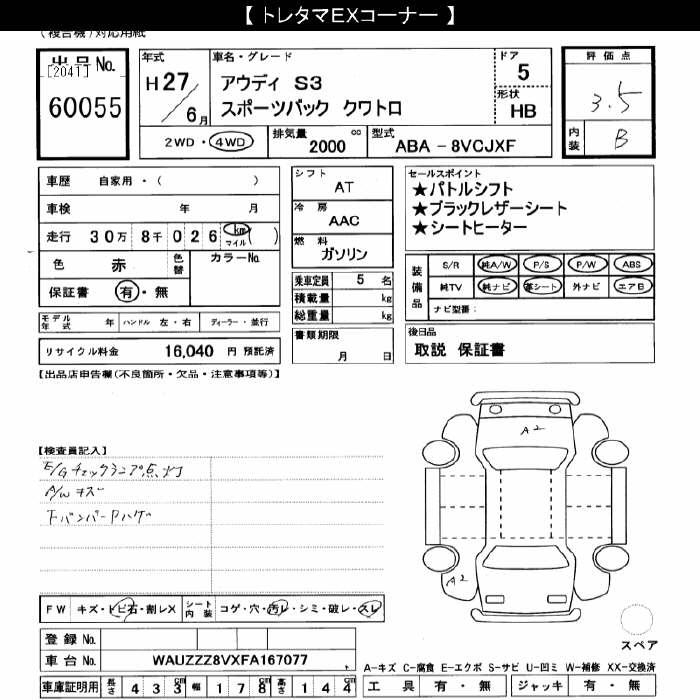 【 トレタマEXコーナー 】
(複合機)対応用紙
出品No.
[2041]
60055
年式
H27/6月
車名・グレード
アウディ S3
スポーツバック クワトロ
ドア
5
形状
HB
評価点
3.5
内装
B
2WD・4WD
排気量
2000 cc
型式
ABA - 8VCJXF
車歴 自家用・( )
車検 年 月
走行 30万 8千 026 km マイル ( )
色 赤 色替 カラーNo.
保証書 有・無
モデル年式 年 ハンドル 左・右 ディーラー・並行
リサイクル料金 16,040 円 預託済
シフト
AT
冷房
AAC
燃料
ガソリン
乗車定員 5 名
積載量 kg
総重量 kg
書類期限
月 日
セールスポイント
★パトルシフト
★ブラックレザーシート
★シートヒーター
装備品
S/R 純A/W P/S P/W ABS
純TV 純ナビ 革シート 外ナビ エアB
ナビ型番:
後日品
取説 保証書
【出品店申告欄(不良箇所・欠品・注意事項等)】
【検査員記入】
E/Gチェックランプ点灯
A/W キズー
Fバンパー Pハゲ
A2
A2
FW キズ・トビ石・割レX シート内装 コゲ・穴・汚レ・シミ・破レ・スレ
登録 No.
車台 No. WAUZZZ8VXFA167077
車庫証明用 長さ 433 cm 幅 178 cm 高さ 144 cm
スペア
A-キズ C-腐食 E-エクボ S-サビ U-凹ミ W-補修 XX-交換済
工具 有・無 ジャッキ 有・無